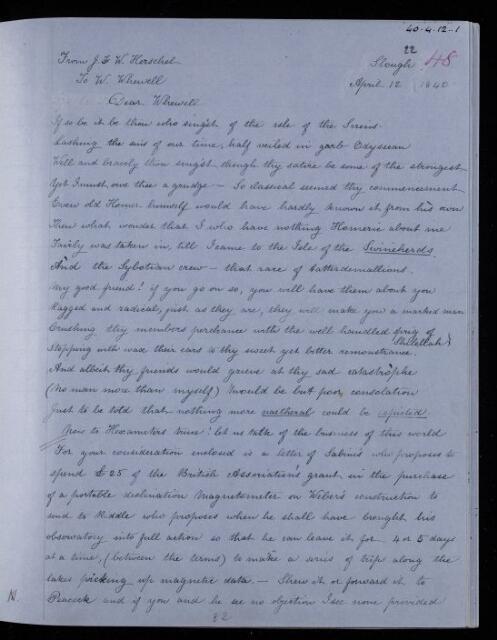 40-4-12-1
22
48
From J. F. W. Herschel Slough
To W. Whewell April 12 1840
Dear Whewell
If so be it be thou who singst of the isle of the Sirens
Lashing the sins of our time, half veiled in garb Odyssean
Well and bravely thou singst though thy satire be some of the strongest
Yet I must owe thee a grudge – So classical seemed thy commencement
Even old Homer himself would have hardly known it from his own
Then what wonder that I who have nothing Homeric about me
Fairly was taken in, till I came to the Isle of the Swineherds
And the Sybotian crew – that race of tatterdemallions.
My good friend! if you go on so, you will have them about you
Ragged and radical, just as they are, they will make you a marked man
Crushing thy members perchance with the well handled sprig of
Shillelah
Stopping with wax their ears to thy sweet yet bitter remonstrance.
And albeit thy friends would grieve at thy sad catastrophe
(No man more than myself) Would be but poor consolation
Just to be told that nothing more could be expected
Now to Hexameters truce! let us talk of the business of this world
For your consideration enclosed is a letter of Sabine's who proposes to
spend £25 of the British Association's grant in the purchase
of a portable declination Magnetometer on Weber's construction to
send to Riddle who proposes when he shall have brought his
observatory into full action so that he can leave it for 4 or 5 days
at a time, (between the terms) to make a series of trips along the
lakes picking up magnetic data – Shew it or forward it to
Peacock and if you and he see no objection I see none provided
N.
32